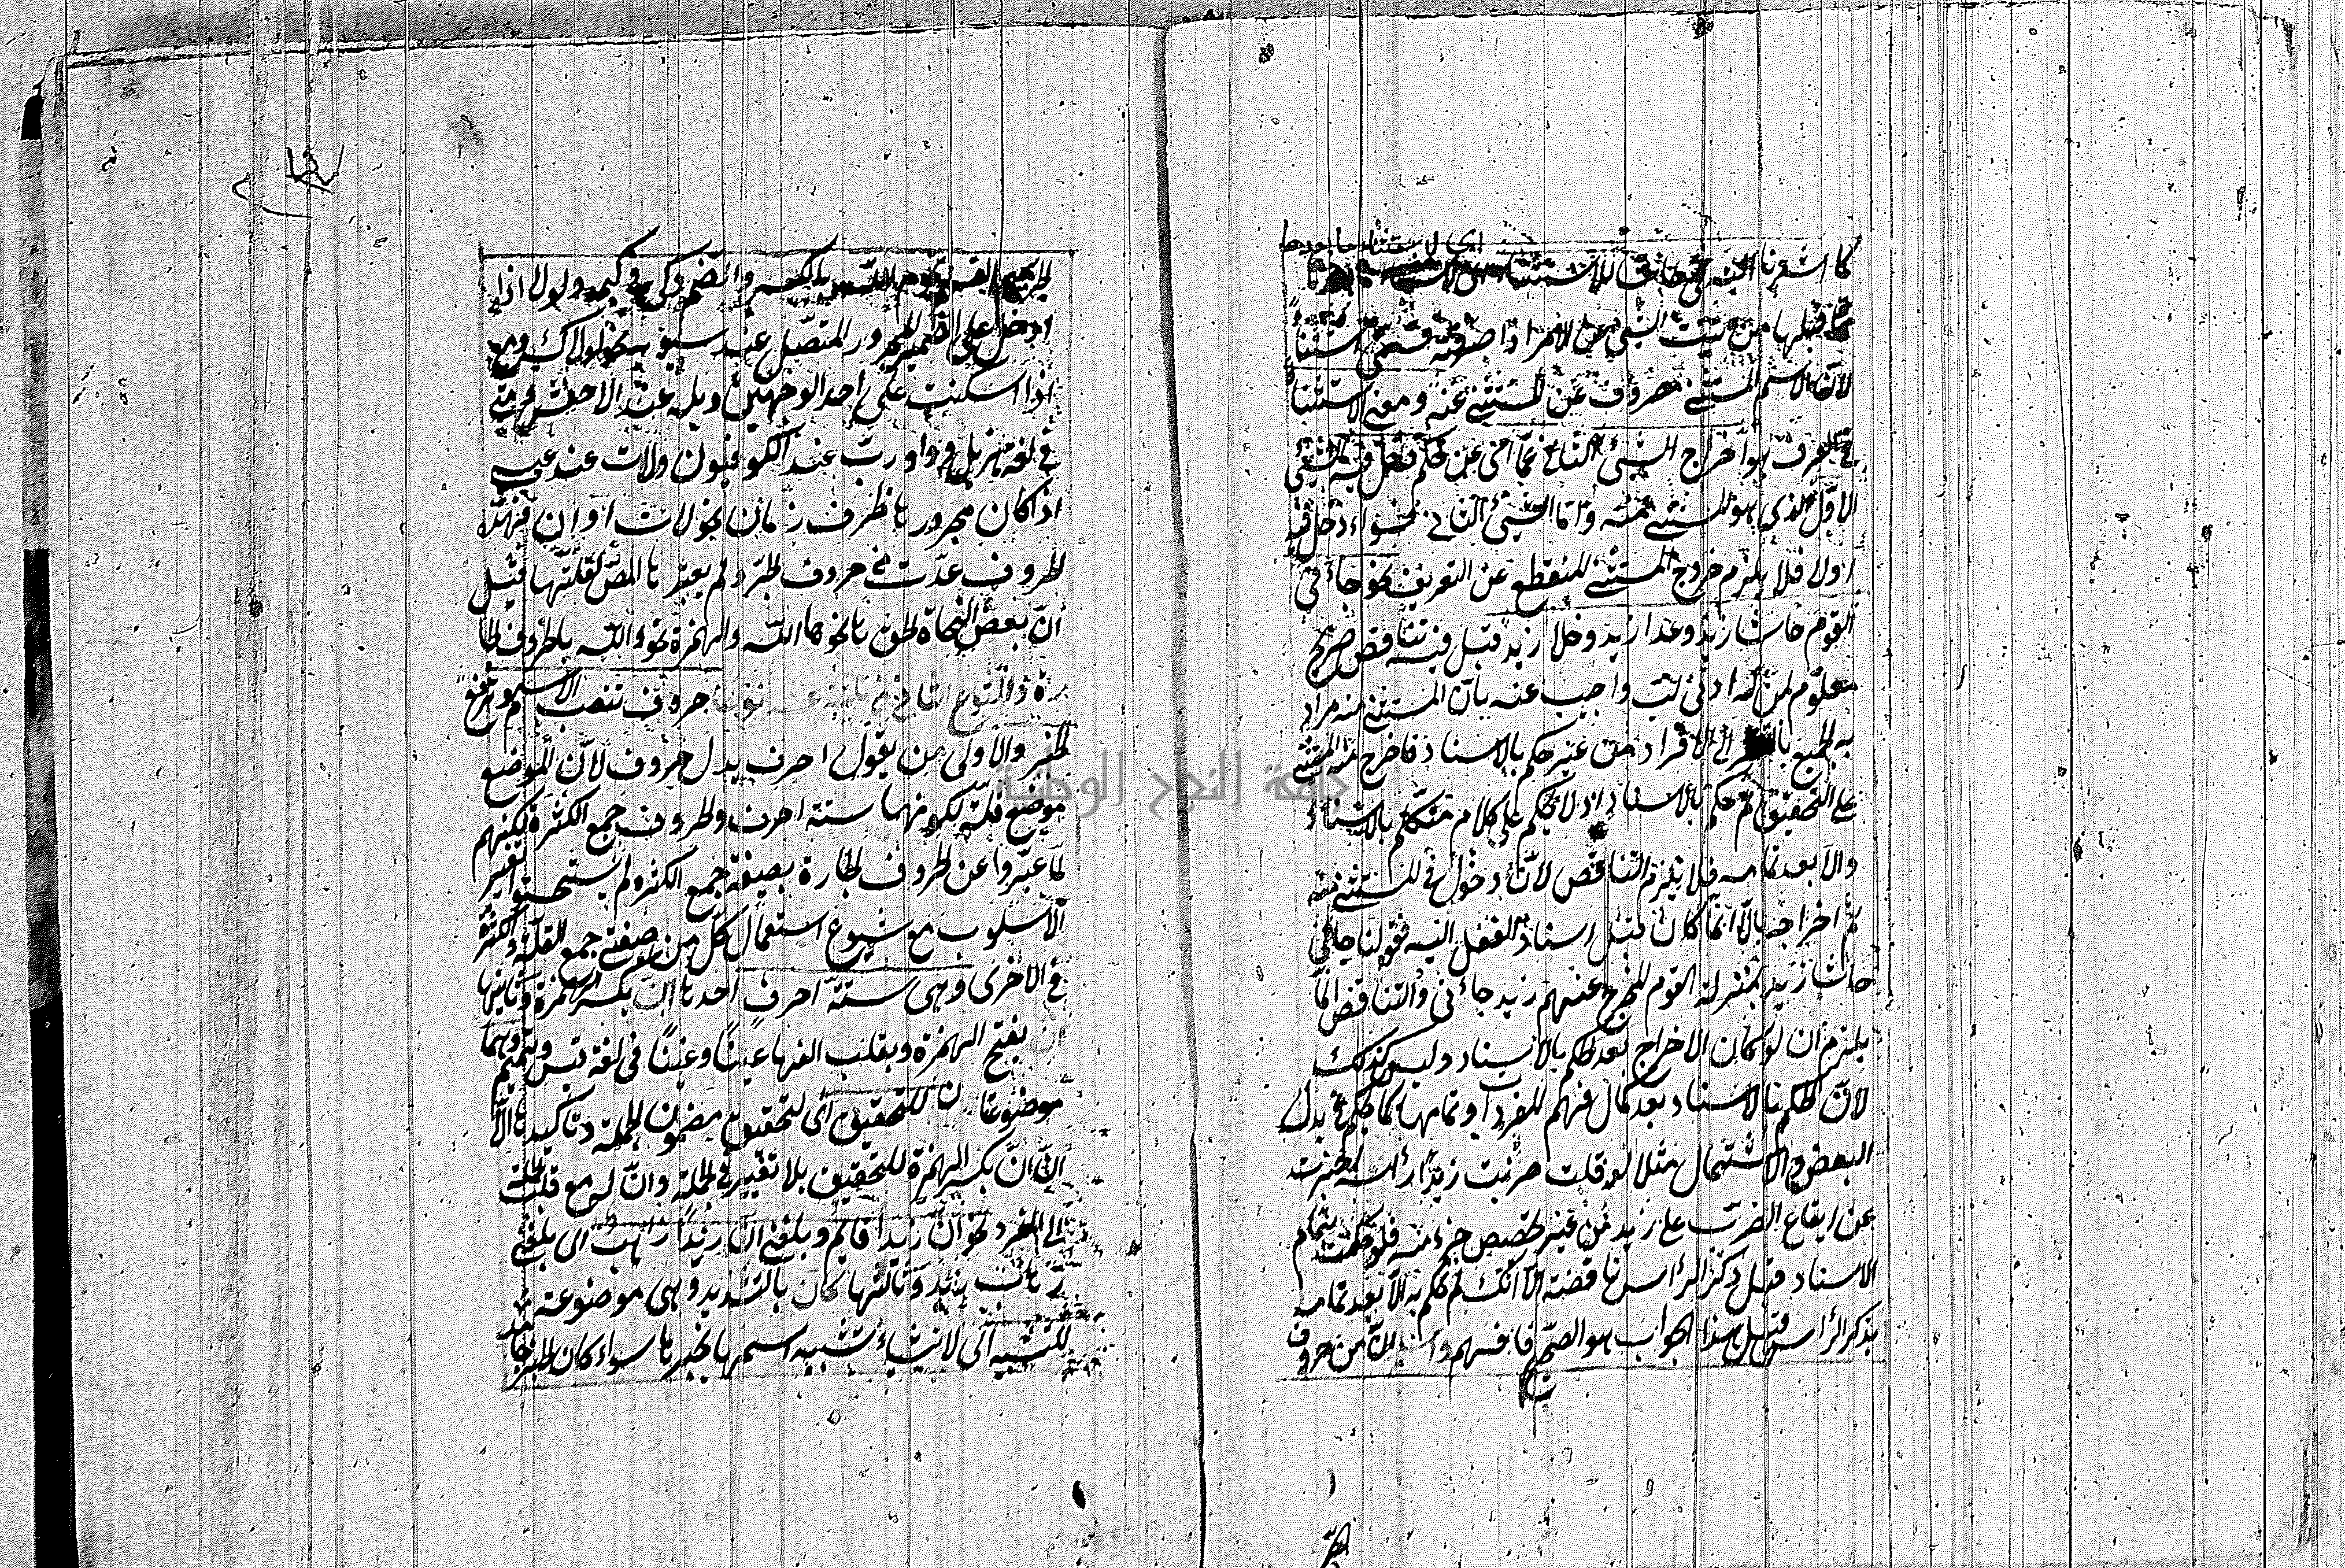 كما اشرنا اليه في حاشا للاستثناء اى لاستثناء ما بعدها
عما قبلها من ثنيت الشيء عن الامر اذا صرفته فسمى استثناء
لان الاسم المستثنى مصروف عن المستثنى عنه ومعنى الاستثناء
في العرف هو اخراج الشئ الثاني عما اى عن حكم دخل فيه الشئ
الاول الذي هو المستثنى منه واما الشئ الثاني سواء دخل فيه
اولا فلا يلزم خروج المستثنى المنقطع عن التعريف نحو جاءنى
القوم حاشا زيد وعدا زيد وخلا زيد قيل فيه تناقض صريح
معلوم لمن له ادنى لب واجيب عنه بان المستثنى منه مراد
به الجميع الى الافراد من غير حكم بالاسناد فاخرج منه المستثنى
على التحقيق ثم حكم بالاسناد اذ لا يحكم على كلام متكلم بالاسناد
والا بعد تمامه فلا يلزم التناقض لان دخول في المستثنى منه
ثم اخراجه بالا انما كان قبل اسناد الفعل اليه فقولنا جاءنى
حاشا زيد بمنزلة القوم المخرج عنهم زيد جاءنى والتناقض انما
يلزم ان لو كان الاخراج بعد الحكم بالاسناد وليس كذلك
لان الحكم بالاسناد بعد كمال فهم المفرد او تمامها كما حكم في بدل
البعض والاشتمال مثلا لو قلت ضربت زيدا رأسه اخبرت
عن ايقاع الضرب على زيد من غير تخصيص جزء منه فلو حكمت بتمام
الاسناد قبل ذكر الراس ناقضته الا انك لم تحكم به الا بعد تمامه
بذكر الراس قيل هذا الجواب هو الصح فافهم من حروف
الجر القسم بالكسر والضم وكي في كيمه ولولا اذا
ادخل على الضمير المجرور المتصل عند سيبويه نحو لولاك ومع
اذا اسكنت على احد الوجهين وبله عند الاخفش ومتى
في لغة هزيل وواو رب عند الكوفيون ولات عند
اذا كان مجرورها ظرف زمان نحو لات اوان فهذه
الحروف عدت في حروف الجر ولم يعتبرها المص لقلتها قيل
ان بعض النحاة الحق بها نحو ها الله والهمزة نحو ءالله بالحروف الجا
رة والنوع الثاني من ثلثة عشر نوعا حروف تنصب الاسم وترفع
الخبر والاولى من يقول احرف بدل حروف لان الموضع
موضع قلة لكونها ستة احرف والحروف جمع الكثرة لكنهم
لما عبروا عن الحروف الجارة بصيغة جمع الكثرة لم يستحسنوا تغيير
الاسلوب مع شيوع استعمال كل من صيغتي جمع القلة والكثرة
في الاخرى وهي ستة احرف احدها ان بكسر الهمزة وثانيها
ان بفتح الهمزة وبقلب الفها عينا وغينا في لغة قيس وتميم وهما
موضوعان للتحقيق اى لتحقيق مضمون الجملة وتاكيدها الا
ان ان بكسر الهمزة للتحقيق بلا تغيير في الجملة وان له مع قلب الجملة
الى المفرد نحو ان زيدا قائم وبلغني ان زيدا ذاهب اى بلغني
ذهاب زيد وثالثها كان بالتشديد وهى موضوعة
للتشبيه اى لانشاء تشبيه اسمها بخبرها سواء كان الخبر جامدا